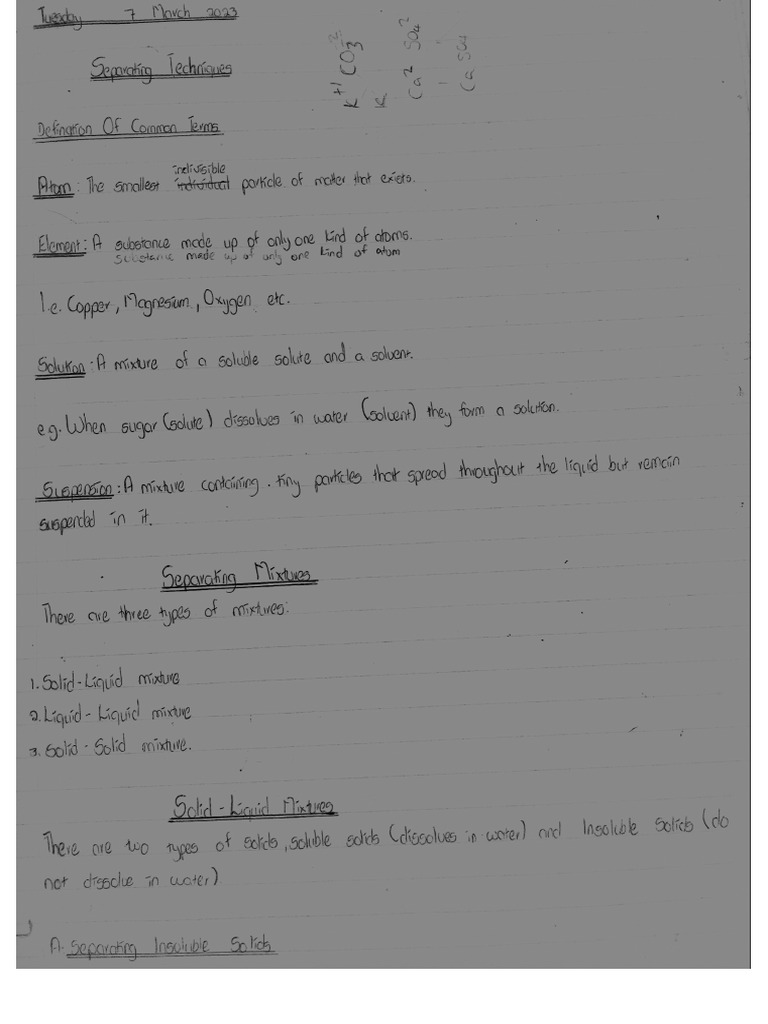 Tuesday 7 March 2023
K+1 CO3 2-
K
Ca2 SO4 2
Ca SO4
Separating Techniques
Defination Of Common Terms
indivisible
Atom: The smallest individual particle of matter that exists.
Element: A substance made up of only one kind of atoms.
substance made up of only one kind of atom
I.e. Copper, Magnesium, Oxygen etc.
Solution: A mixture of a soluble solute and a solvent.
eg. When sugar (solute) dissolves in water (solvent) they form a solution.
Suspension: A mixture containing tiny particles that spread throughout the liquid but remain
suspended in it.
Separating Mixtures
There are three types of mixtures:
1. Solid-Liquid mixture
2. Liquid-Liquid mixture
3. Solid-Solid mixture.
Solid-Liquid Mixtures
There are two types of solids, soluble solids (dissolves in water) and Insoluble Solids (do
not dissolve in water)
A. Separating Insoluble Solids